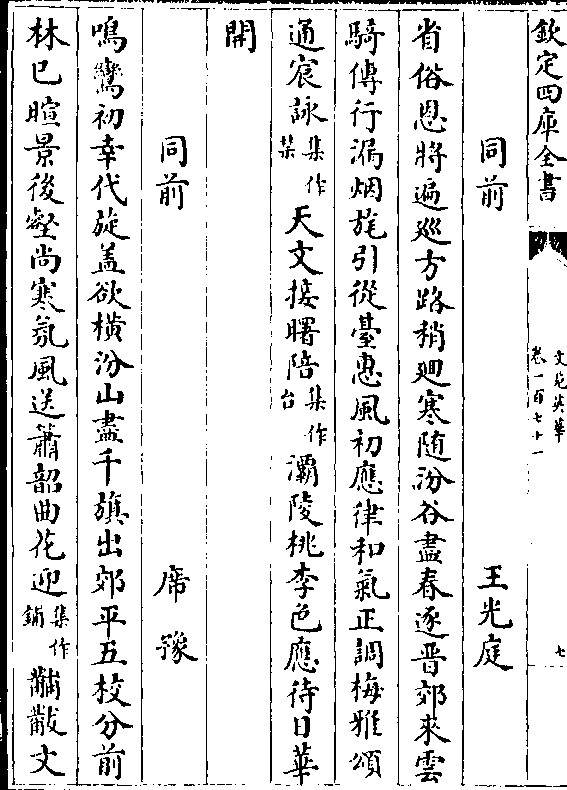 欽定四庫全書
文苑英華
卷一百七十一
七
同前
王光庭
省俗恩將遍巡方路稍廻寒随汾谷盡春逐晉郊來雲
騎傳行漏烟旄引從臺惠風初應律和氣正調梅雅頌
通宸詠集作禁天文接曙陪集作台灞陵桃李色應待日華
開
同前
席豫
鳴鸞初幸代旋盖欲横汾山盡千旗出郊平五校分前
林已暄景後壑尚寒氛風送蕭韶曲花迎集作鋪黼黻文